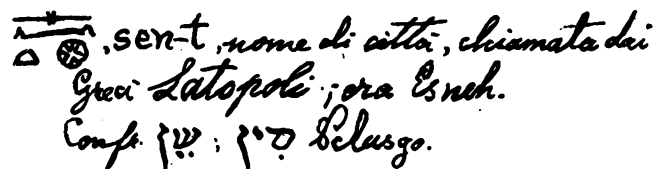 𓊃𓈖𓏏𓊖, sen-t, nome di città, chiamata dai
Greci Latopoli; ora Esneh.
Confr. שֵׁן; סִין Pelusgo.